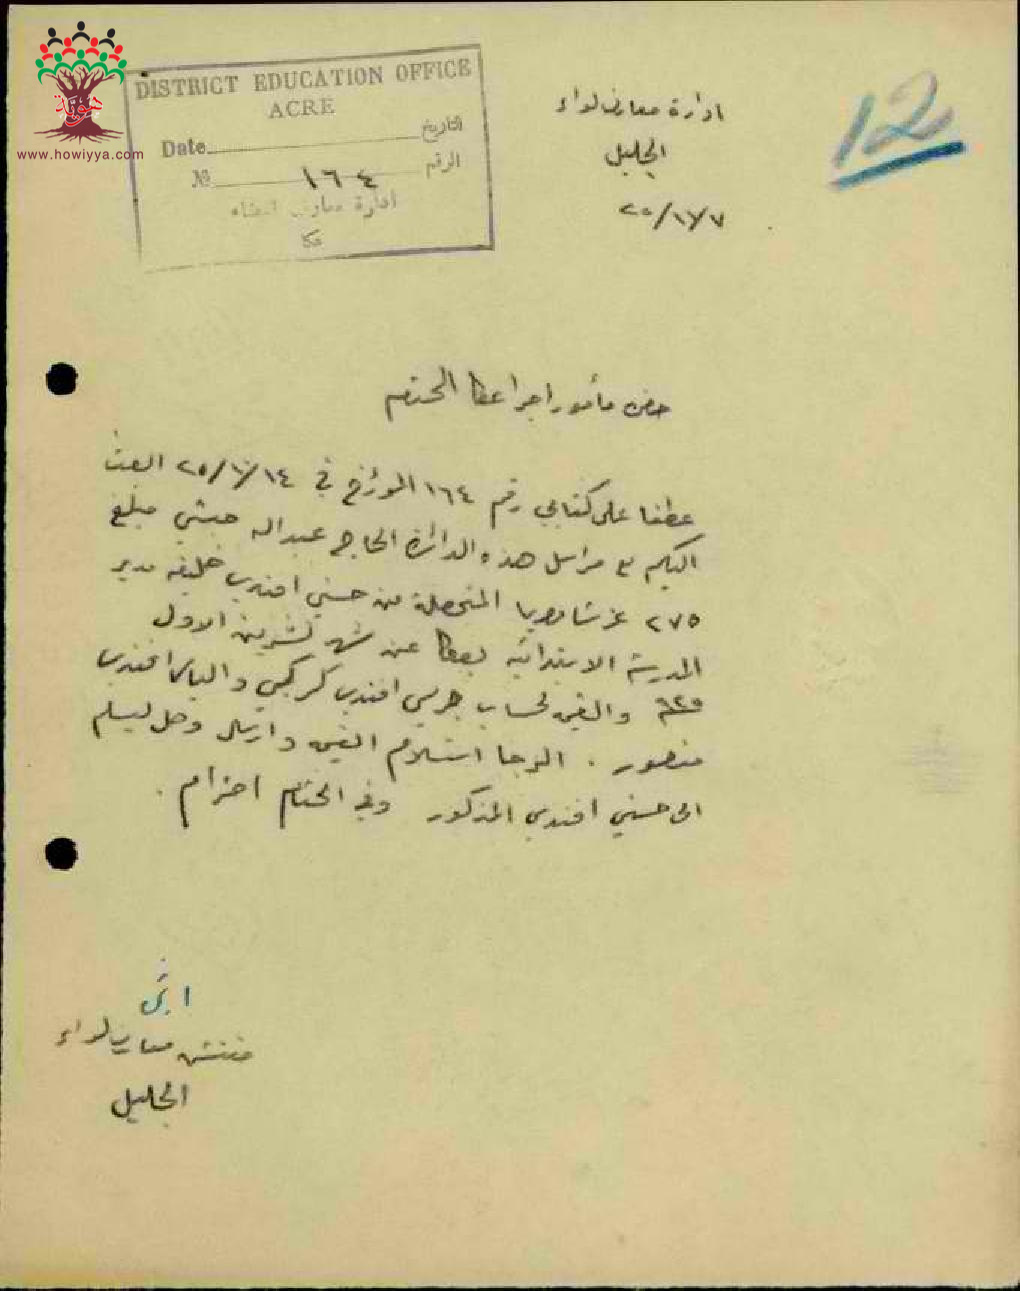 هوية
www.howiyya.com
DISTRICT EDUCATION OFFICE
ACRE
Date التاريخ
№ ١٦٤ الرقم
ادارة معارف قضاء
عكا
12
ادارة معارف لواء
الجليل
حضرة مأمور اجرا عكا المحترم
عطفا على كتابي رقم ١٦٤ المؤرخ في ٢٥/١٠/١٤ ابعث
اليكم مع مراسل هذه الدائرة الحاج عبدالله حبشي مبلغ
٢٧٥ غرشا مصريا المتحصلة من حسني افندي خليفه مدير
المدرسة الابتدائية بعكا عن شهر تشرين الاول
٩٢٥ لحساب جريس افندي والياس افندي
منصور . الرجا استلام وارسال وصل ليسلم
الى حسني افندي المذكور وفي الختام احترام .
مفتش معارف لواء
الجليل